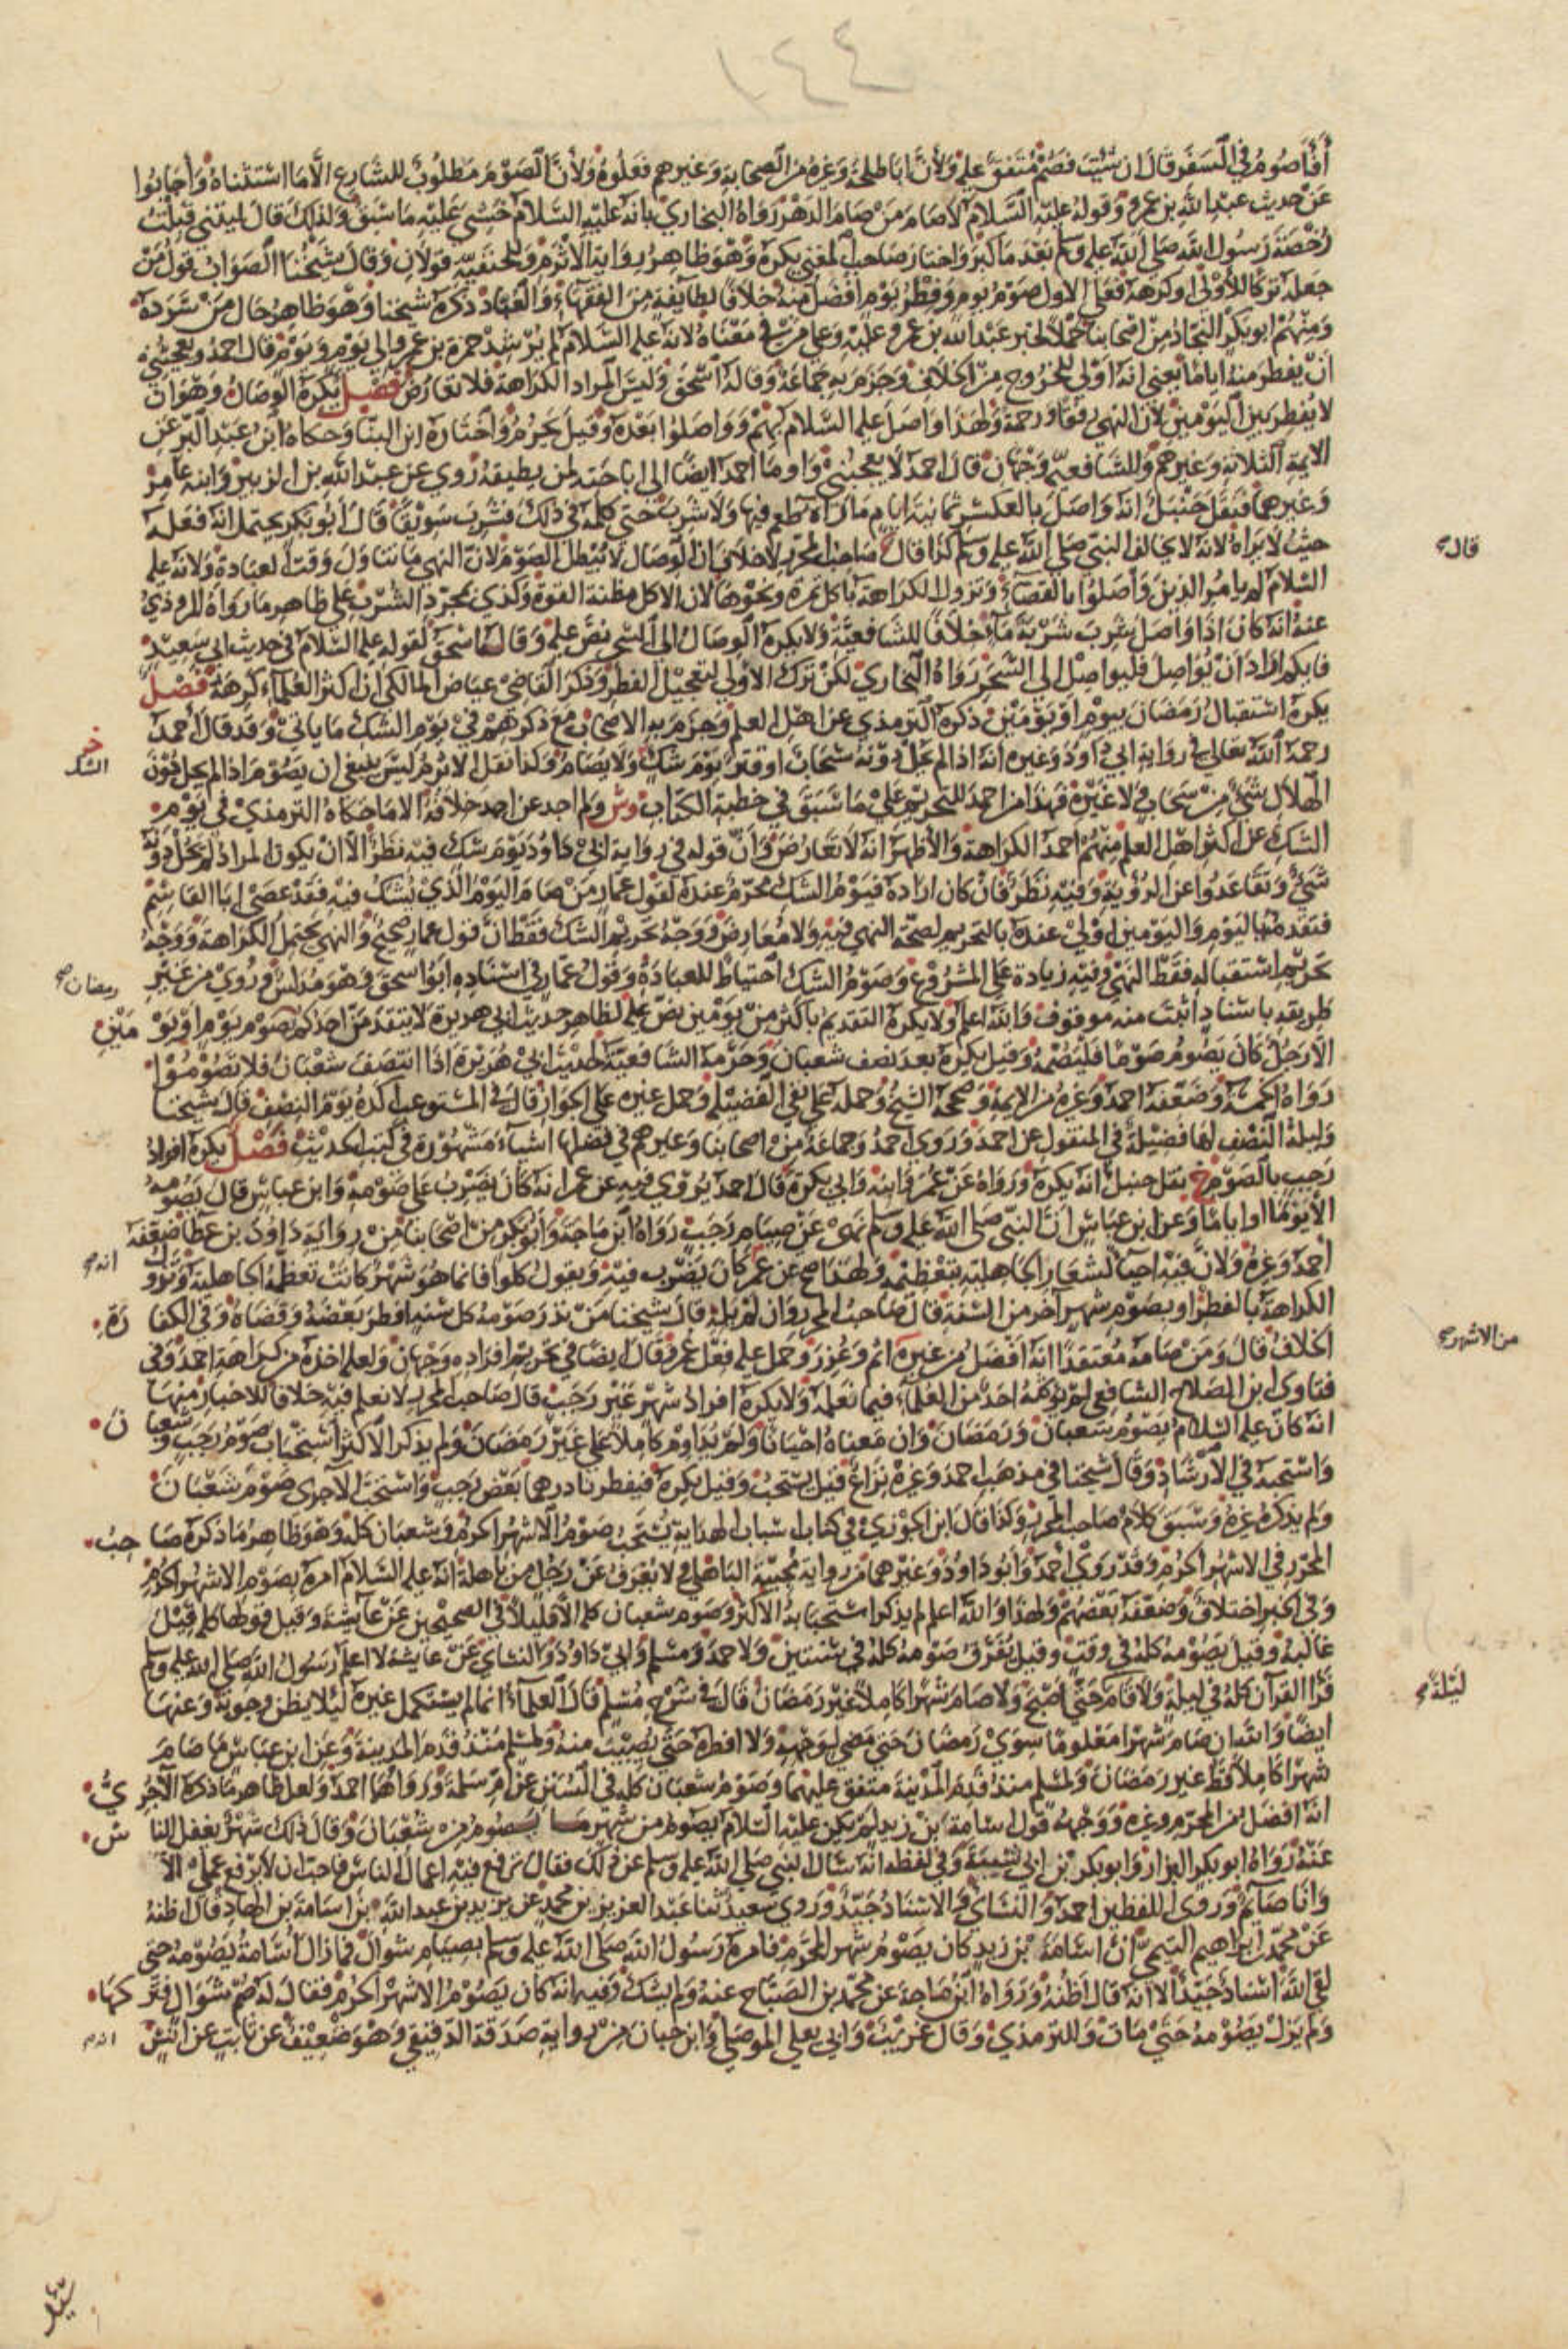 ١٤٤
أفأصوم في السفر قال ان شئت فصم متفق عليه ولأن ابا طلحة وغيره من الصحابة وغيرهم فعلوه ولأن الصوم مطلوب للشارع الا ما استثناه وأجابوا
عن حديث عبد الله بن عمرو وقوله عليه السلام لا صام من صام الدهر رواه البخاري بانه عليه السلام خشي عليه ما سبق ولذلك قال ليتني قبلت
رخصة رسول الله صلى الله عليه وسلم بعد ما كبر واختار صاحب المغني يكره وهو ظاهر رواية الأثرم وللحنفية قولان وقال شيخنا الصواب قول من
جعله تركا للأولى او كرهه فعلى الاول صوم يوم وفطر يوم افضل منه خلافا لطايفة من الفقهاء والعباد ذكره شيخنا وهو ظاهر حال من سرده
ومنهم ابو بكر النجاد من اصحابنا حملا لخبر عبد الله بن عمرو عليه وعلى من في معناه لانه عليه السلام لم يرشد حمزة بن عمرو الى يوم ويوم قال احمد ويعجبني
ان يفطر منه اياما يعني انه اولى للخروج من الخلاف وجزم به جماعة وقاله اسحق وليس المراد الكراهة فلا تعارض فصل يكره الوصال وهو ان
لا يفطر بين اليومين لان النهي رفقا ورحمة ولهذا واصل عليه السلام بهم وواصلوا بعده وقيل يحرم واختاره ابن البنا وحكاه ابن عبد البر عن
الايمة الثلاثة وغيرهم وللشافعية وجهان قال احمد لا يعجبني واوما احمد ايضا الى اباحته لمن يطيقه روي عن عبد الله بن الزبير وابنه عامر
وغيرهما فنقل حنبل انه واصل بالعسكر ثمانية ايام ما رآه طعم فيها ولا شرب حتى كلمه في ذلك فشرب سويقا قال أبو بكر يحتمل انه فعله
حيث لا يراه لانه لا يخالف النبي صلى الله عليه وسلم كذا قال صاحب المحرر لا خلاف ان الوصال لا يبطل الصوم لان النهي ما تناول وقت العبادة ولانه عليه
قال
السلام لم يامر الذين واصلوا بالقضاء وتزول الكراهة باكل تمرة ونحوها لان الاكل مظنة القوة وكذي بمجرد الشرب على ظاهر ما رواه المروذي
عنه انه كان اذا واصل شرب شربة ماء خلافا للشافعية ولا يكره الوصال الى السحر نص عليه وقاله اسحق لقوله عليه السلام في حديث ابي سعيد
فايكم اراد ان يواصل فليواصل الى السحر رواه البخاري لكن ترك الاولى لتعجيل الفطر وذكر القاضي عياض المالكي ان اكثر العلماء كرهه فصل
يكره استقبال رمضان بيوم او يومين ذكره الترمذي عن اهل العلم وجزم به الاصحاب مع ذكرهم في يوم الشك ما ياتي وقد قال أحمد
رحمه الله تعالى في رواية ابي داود وغيره انه اذا لم يحل دونه سحاب او قتر يوم شك ولا يصام وكذا نقل الاثرم ليس ينبغي ان يصوم اذا لم يحل دون
الشك
الهلال شيء من سحاب ولا غيره فهذا من احمد للتحريم على ما سبق في خطبة الكتاب وش ولم اجد عن احمد خلافه الا ما حكاه الترمذي في يوم
الشك عن اكثر اهل العلم منهم احمد الكراهة والأظهر انه لا تعارض وأن قوله في رواية ابي داود يوم شك فيه نظر الا ان يكون المراد لم يحل دونه
شيء وتقاعدوا عن الرؤية وفيه نظر فان كان اراده فصوم الشك محرم عنده لقول عمار من صام اليوم الذي يشك فيه فقد عصى ابا القاسم
فتقدمها ليوم واليومين اولى عنده بالتحريم لصحة النهي فيه ولا معارض ووجه تحريم الشك فقط ان قول عمار صحيح والنهي يحتمل الكراهة ووجه
تحريم استقباله فقط النهي وفيه زيادة على المشروع وصوم الشك احتياط للعبادة وقول عمار في اسناده ابو اسحق وهو مدلس وروي من غير
رمضان صح
طريقه باسناد اثبت منه موقوف والله اعلم ولا يكره التقديم باكثر من يومين نص عليه لظاهر حديث ابي هريرة لا يتقدمن احدكم صوم يوم او يومين
الا رجل كان يصوم صوما فليصمه وقيل يكره بعد نصف شعبان وحرمه الشافعية لحديث ابي هريرة اذا انتصف شعبان فلا تصوموا
رواه الخمسة وضعفه احمد وغيره من الايمة وصححه الشيخ وحمله على نفي الفضيلة وحمل غيره على الجواز قال في المستوعب اكره يوم النصف قال شيخنا
وليلة النصف لها فضيلة في المنقول عن احمد وروى احمد وجماعة من اصحابنا وغيرهم في فضلها اشياء مشهورة في كتب الحديث فصل يكره افراد
رجب بالصوم خ نقل حنبل انه يكره ورواه عن عمر وابنه وابي بكرة قال احمد يروى فيه عن عمر انه كان يضرب على صومه وابن عباس قال يصومه
الا يوما او اياما وعن ابن عباس ان النبي صلى الله عليه وسلم نهى عن صيام رجب رواه ابن ماجة وابو بكر من اصحابنا من رواية داود بن عطا ضعفه
احمد وغيره ولان فيه احيا لشعار الجاهلية بتعظيمه ولهذا صح عن عمر كان يضرب فيه ويقول كلوا فانما هو شهر كانت تعظمه الجاهلية وتزول
انه صح
الكراهة بالفطر او بصوم شهر آخر من السنة قال صاحب المحرر وان لم يله قال شيخنا من نذر صومه كل سنة افطر بعضه وقضاه وفي الكفارة
الخلاف قال ومن صامه معتقدا انه افضل من غيره اثم وعزر وحمل عليه فعل عمر وقال ايضا في تحريم افراده وجهان ولعله اخذه من كراهة احمد وفي
من الاشهر صح
فتاوى ابن الصلاح الشافعي لم يؤثمه احد من العلماء فيما نعلمه ولا يكره افراد شهر غير رجب قال صاحب المحرر لا نعلم فيه خلافا للاخبار منها
انه كان عليه السلام يصوم شعبان ورمضان وان معناه احيانا ولم يداوم كاملا على غير رمضان ولم يذكر الاكثر استحباب صوم رجب وشعبان
واستحبه في الارشاد وقال شيخنا في مذهب احمد وغيره نزاع قيل يستحب وقيل يكره فيفطر ناذرهما بعض رجب واستحب الآجري صوم شعبان
ولم يذكره غيره وسبق كلام صاحب المحرر وكذا قال ابن الجوزي في كتاب اسباب الهداية يستحب صوم الاشهر الحرم وشعبان كله وهو ظاهر ما ذكره صاحب
المحرر في الاشهر الحرم وقد روى احمد وابو داود وغيرهما من رواية مجيبة الباهلي ولا يعرف عن رجل من باهلة انه عليه السلام امره بصوم الاشهر الحرم
وفي الخبر اختلاف وضعفه بعضهم ولهذا والله اعلم لم يذكر استحبابه الاكثر وصوم شعبان كله الا قليلا في الصحيحين عن عايشة وقيل قولها كله قيل
غالبه وقيل يصومه كله في وقت وقيل يفرق صومه كله في سنتين ولاحمد ومسلم وابي داود والنساي عن عايشة لا اعلم رسول الله صلى الله عليه وسلم
قرأ القرآن كله في ليلة ولا قام حتى أصبح ولا صام شهرا كاملا غير رمضان قال في شرح مسلم قال العلماء انما لم يستكمل غيره ليلا يظن وجوبه وعنها
ليلة صح
ايضا والله ان صام شهرا معلوما سوى رمضان حتى مضى لوجهه ولا افطره حتى يصيب منه ولمسلم منذ قدم المدينة وعن ابن عباس ما صام
شهرا كاملا قط غير رمضان ولمسلم منذ قدم المدينة متفق عليهما وصوم شعبان كله في السنن عن ام سلمة ورواهما احمد ولعل ظاهر ما ذكره الآجري
انه افضل من المحرم وغيره ووجهه قول اسامة بن زيد لم يكن عليه السلام يصوم من شهر ما يصوم من شعبان وقال ذلك شهر يغفل الناس
عنه رواه ابو بكر البزار وابو بكر بن ابي شيبة وفي لفظه انه سال النبي صلى الله عليه وسلم عن ذلك فقال ترفع فيه اعمال الناس فاحب ان لا يرفع عملي الا
وانا صائم وروى اللفظين احمد والنساي والاسناد جيد وروى سعيد ثنا عبد العزيز بن محمد عن يزيد بن عبد الله بن اسامة بن الهاد قال اظنه
عن محمد بن ابراهيم التيمي ان اسامة بن زيد كان يصوم شهر المحرم فامره رسول الله صلى الله عليه وسلم بصيام شوال فما زال اسامة يصومه حتى
لقي الله اسناد جيد الا انه قال اظنه ورواه ابن ماجة عن محمد بن الصباح عنه ولم يشك وفيه انه كان يصوم الاشهر الحرم فقال له صم شوال فتركها
ولم يزل يصومه حتى مات وللترمذي وقال غريب وابي يعلى الموصلي وابن حبان من رواية صدقة الدقيقي وهو ضعيف عن ثابت عن أنس